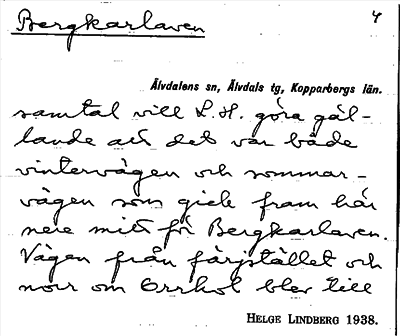 Bergkarlaven 4
Älvdalens sn, Älvdals tg, Kopparbergs län.
samtal vill L. H. göra gäl-
lande att det var både
vintervägen och sommar-
vägen som gick fram här
nere mitt för Bergkarlaven.
Vägen från färjstället och
norr om Orrhol blev till
HELGE LINDBERG 1938.